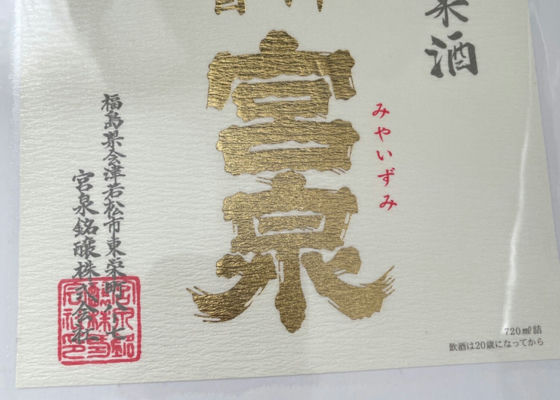 米酒
みやいずみ
宮泉
福島県会津若松市東栄町八ノ七
宮泉銘醸株式会社
720㎖詰
飲酒は20歳になってから